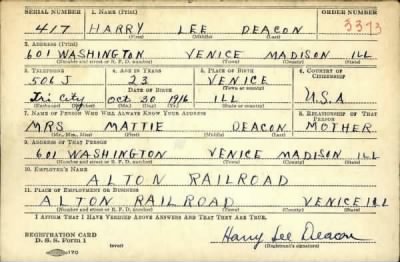 SERIAL NUMBER 1. NAME (Print) ORDER NUMBER
417 HARRY LEE DEACON 3373
(First) (Middle) (Last)
2. ADDRESS (Print)
601 WASHINGTON VENICE MADISON ILL
(Number and street or R. F. D. number) (Town) (County) (State)
3. TELEPHONE 4. AGE IN YEARS 5. PLACE OF BIRTH 6. COUNTRY OF CITIZENSHIP
506 J 23 VENICE
DATE OF BIRTH (Town or county)
Tri City Oct 30 1916 ILL U.S.A
(Exchange) (Number) (Mo.) (Day) (Yr.) (State or country)
7. NAME OF PERSON WHO WILL ALWAYS KNOW YOUR ADDRESS 8. RELATIONSHIP OF THAT PERSON
MRS MATTIE DEACON MOTHER
(Mr., Mrs., Miss) (First) (Middle) (Last)
9. ADDRESS OF THAT PERSON
601 WASHINGTON VENICE MADISON ILL
(Number and street or R. F. D. number) (Town) (County) (State)
10. EMPLOYER'S NAME
ALTON RAILROAD
11. PLACE OF EMPLOYMENT OR BUSINESS
ALTON RAILROAD VENICE ILL
(Number and street or R. F. D. number) (Town) (County) (State)
I AFFIRM THAT I HAVE VERIFIED ABOVE ANSWERS AND THAT THEY ARE TRUE.
REGISTRATION CARD Harry Lee Deacon
D. S. S. Form 1 (over) (Registrant's signature)
170